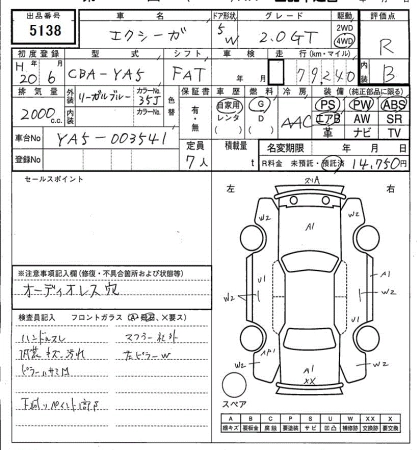 出品番号 車名 ドア形状 グレード 駆動 評価点
5138 エクシーガ 5 W 2.0GT 2WD 4WD R B
初度登録 型式 シフト 車検 走行(km・マイル)
H 20年 6月 CBA-YA5 FAT 年 月 79,240
排気量 外装 リーガルブルー カラーNo. 35J 色替 保証書 車歴 燃料 冷房 装備(純正部品に限る)
2000 c.c. 内装 カラーNo. 有・無 自家用 レンタ G D AAC PS PW ABS
エアB AW SR
革 ナビ TV
車台No YA5-003541 定員 積載量 名変期限 年 月 日
登録No 7人 t R料金 未預託・預託済 14,750円
セールスポイント
左 右
※注意事項記入欄(修復・不具合箇所および状態等)
オーディオレス穴
検査員記入 フロントガラス
ハンドルスレ マフラー社外
内装キズ汚れ 左ピラーW
XA
W2 W2
A1
U1 U1
A1
W2 W2
W2
A1
XX
スペア
A B C P S U W X XX
線キズ 要板金 腐蝕 要塗装 サビ 凹凸 補修跡 要交換 交換跡